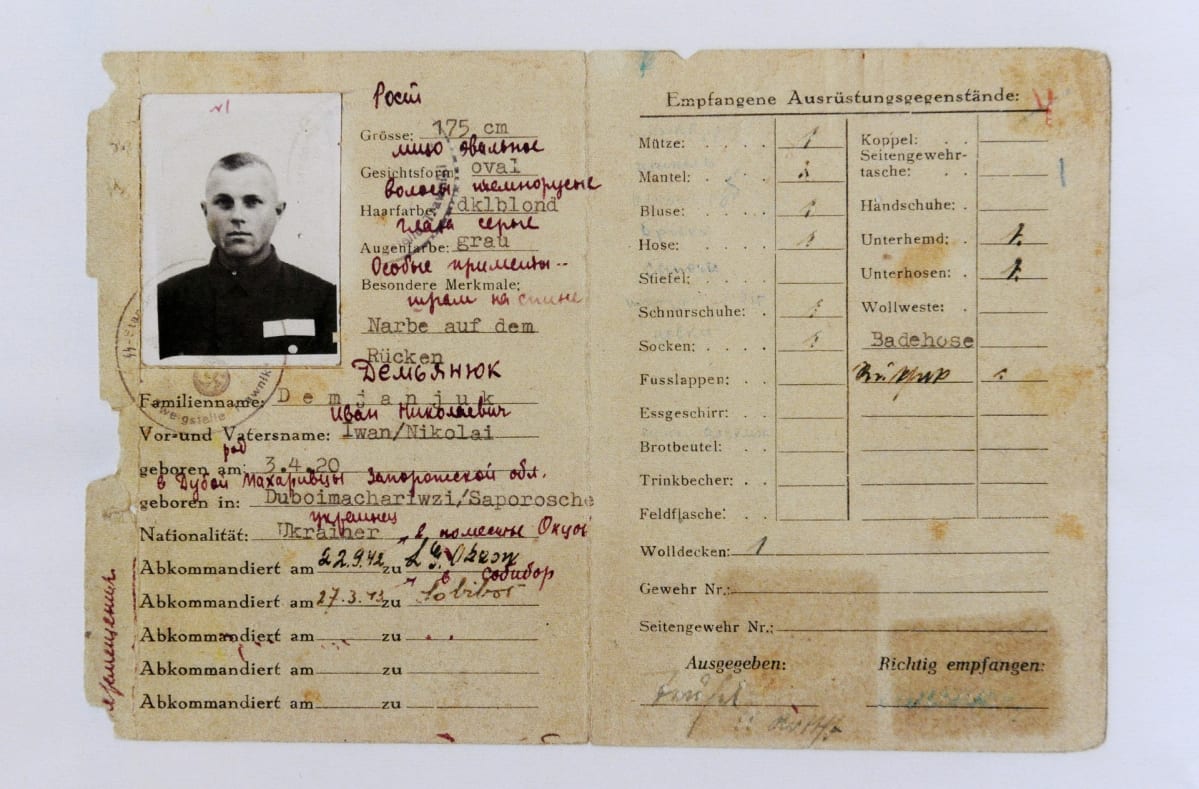 Рост
Grösse: 175 cm
лицо овальное
Gesichtsform: oval
волосы темнорусые
Haarfarbe: dklblond
глаза серые
Augenfarbe: grau
Особые приметы --
Besondere Merkmale:
шрам на спине
Narbe auf dem
Rücken
ДЕМЬЯНЮК
Familienname: Demjanjuk
Иван Николаевич
Vor-und Vatersname: Iwan/Nikolai
род
geboren am: 3.4.20
в Дубой Махаривцы Запорожской обл.
geboren in: Duboimachariwzi/Saporosche
украинец
Nationalität: Ukrainer
" в поместье Окцов
Abkommandiert am 22.9.42 zu L.G. Okzow
" в Собибор
Abkommandiert am 27.3.43 zu Sobibor
Abkommandiert am zu
Abkommandiert am zu
Abkommandiert am zu
Empfangene Ausrüstungsgegenstände:
Mütze: 1
Mantel: 1
Bluse: 1
Hose: 1
Stiefel:
Schnürschuhe: 1
Socken: 1
Fusslappen:
Essgeschirr:
Brotbeutel:
Trinkbecher:
Feldflasche:
Koppel:
Seitengewehr-
tasche:
Handschuhe:
Unterhemd: 1.
Unterhosen: 1.
Wollweste:
Badehose
Wolldecken: 1
Gewehr Nr.:
Seitengewehr Nr.:
Ausgegeben: Richtig empfangen: